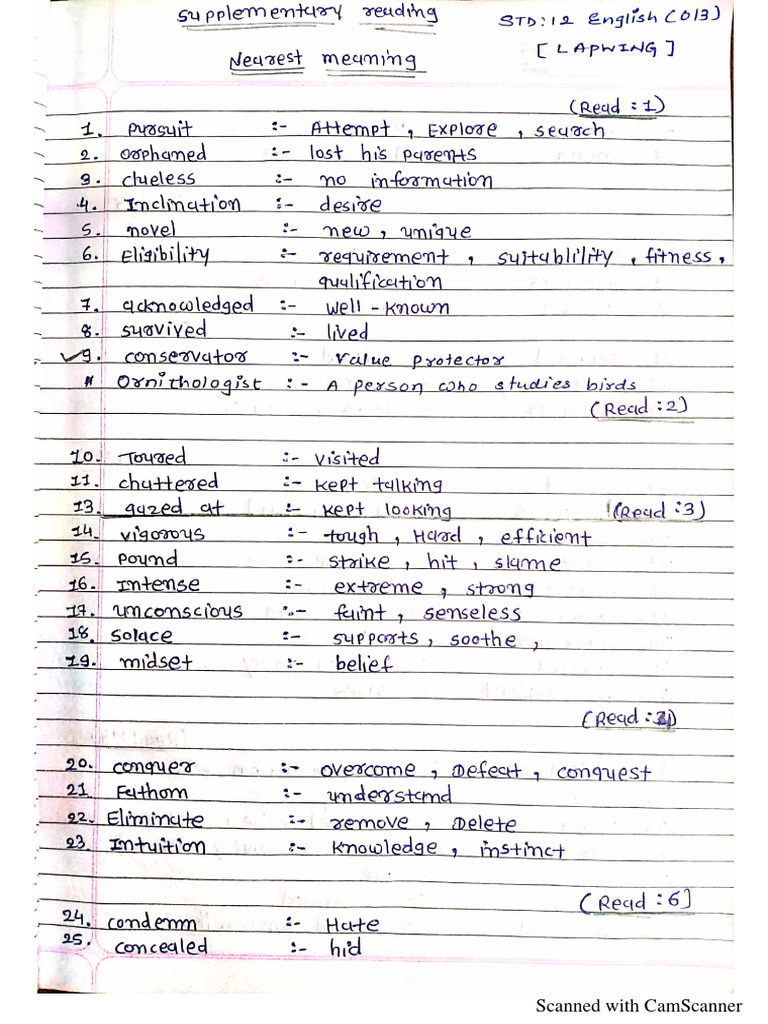 Supplementary reading STD:12 English (013)
[LAPWING]
Nearest meaning
(Read :1)
1. pursuit :- Attempt, Explore, search
2. orphaned :- lost his parents
3. clueless :- no information
4. Inclination :- desire
5. novel :- new, unique
6. Eligibility :- requirement, suitablility, fitness,
qualification
7. acknowledged :- well-known
8. survived :- lived
✓9. conservator :- value protector
* Ornithologist :- A person who studies birds
(Read :2)
10. Toured :- visited
11. chattered :- kept talking
13. gazed at :- kept looking (Read :3)
14. vigorous :- tough, Hard, efficient
15. Pound :- strike, hit, slame
16. Intense :- extreme, strong
17. unconscious :- faint, senseless
18. solace :- supports, soothe,
19. midset :- belief
(Read :)
20. conquer :- overcome, Defeat, conquest
21 Fathom :- understand
22. Eliminate :- remove, Delete
23. Intuition :- knowledge, instinct
(Read :6]
24. condemn :- Hate
25. concealed :- hid
Scanned with CamScanner